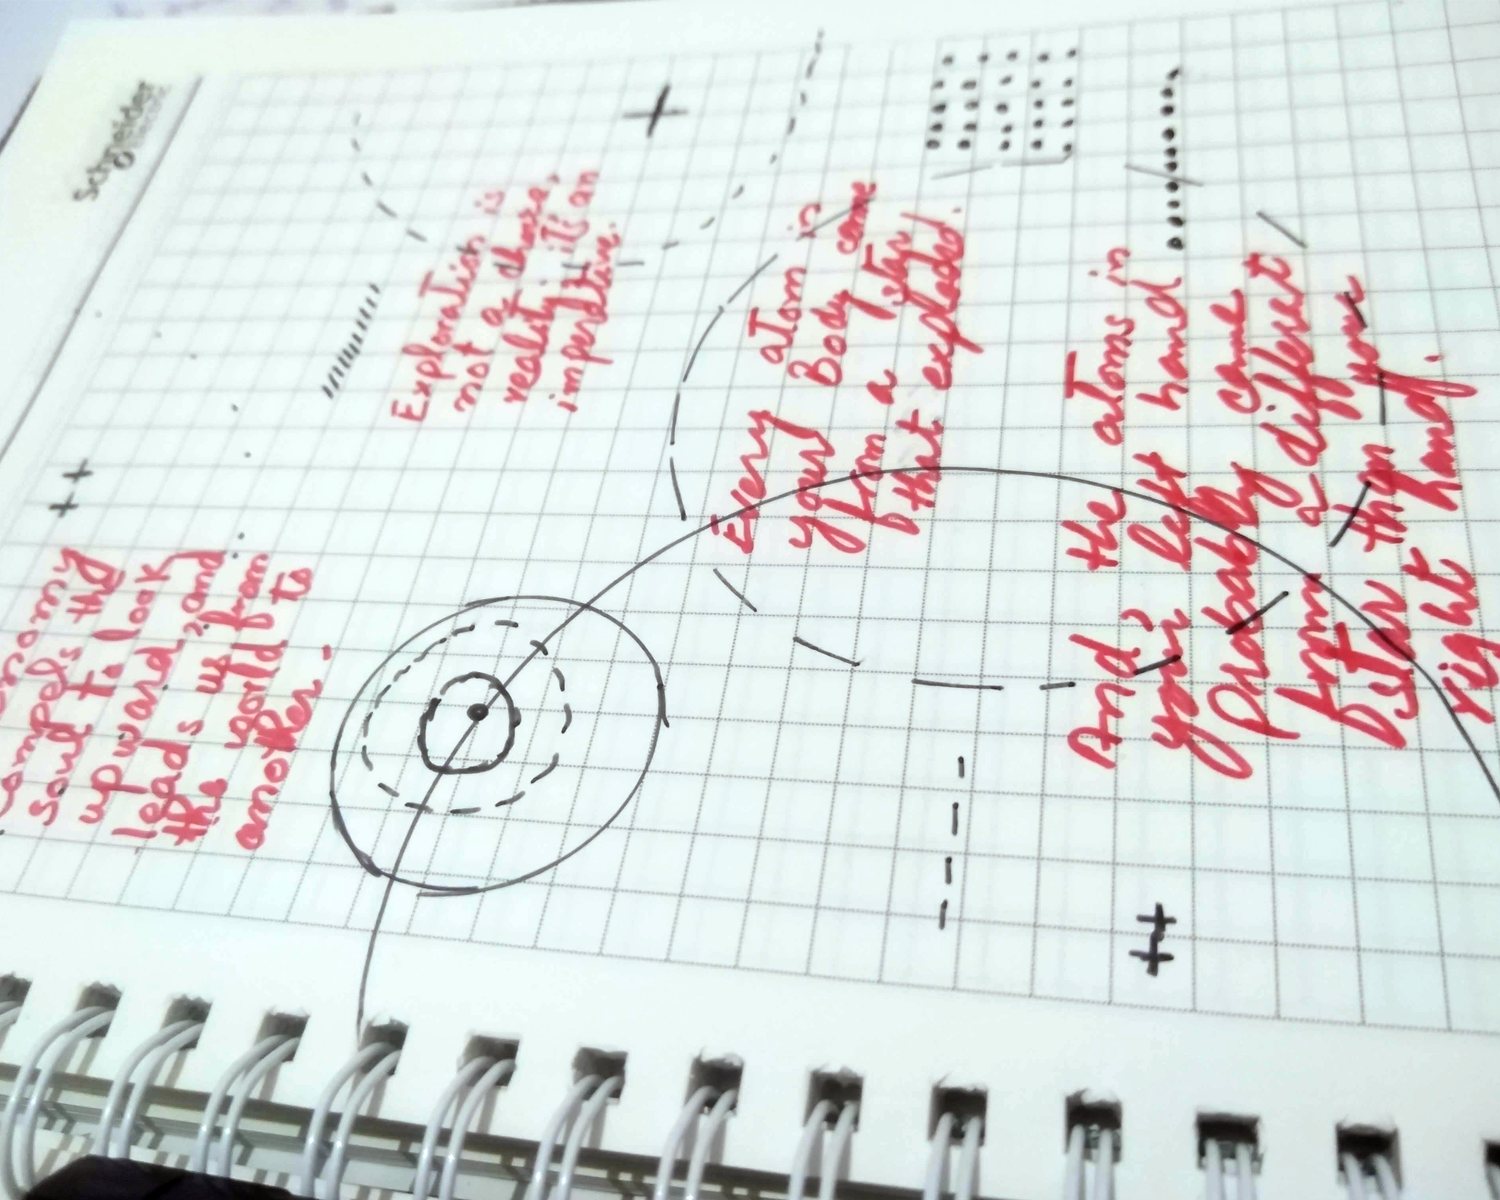 Schneider
compels the
soul to look
upward, and
leads us from
this world to
another.
Exploration is
not a choice,
really; it's an
imperative.
Every atom in
your Body came
from a star
that exploded.
And the atoms in
your left hand
Probably came
from a different
star than your
right hand.